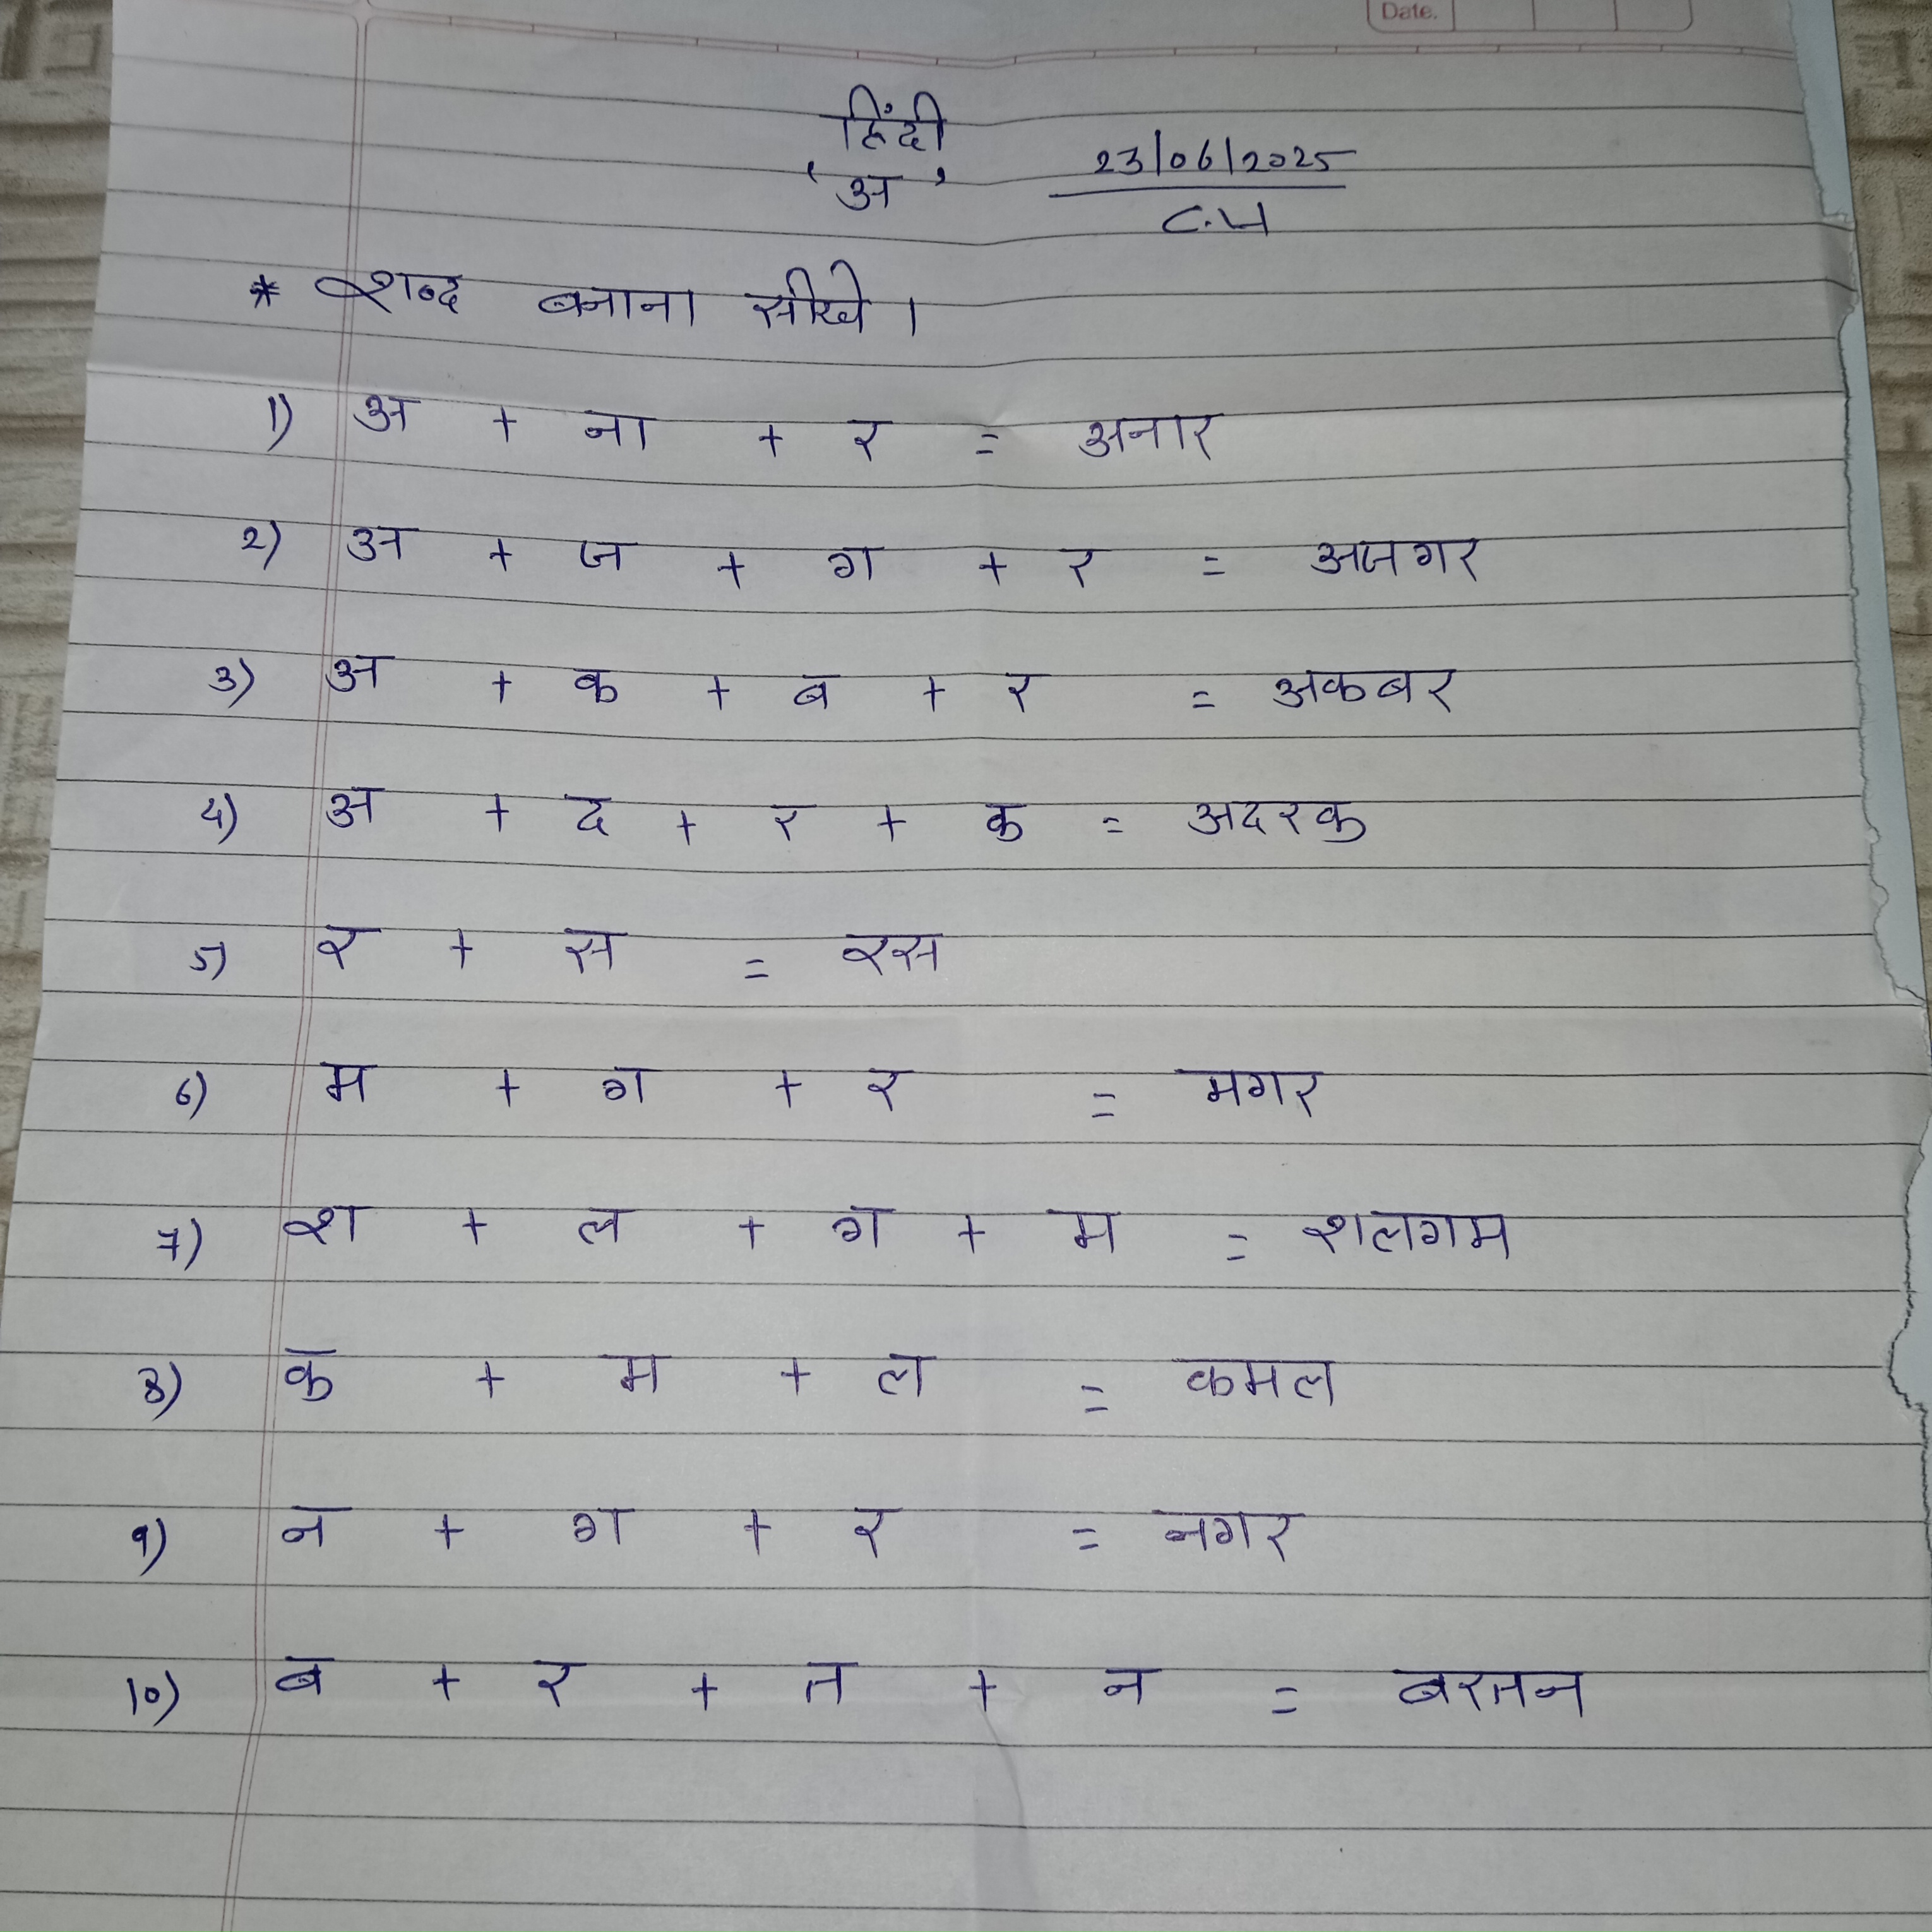 Date.
हिंदी
'अ' 23/06/2025
C.W
* शब्द बनाना सीखे।
1) अ + ना + र = अनार
2) अ + ज + ग + र = अजगर
3) अ + क + ब + र = अकबर
4) अ + द + र + क = अदरक
5) र + स = रस
6) म + ग + र = मगर
7) श + ल + ग + म = शलगम
8) क + म + ल = कमल
9) न + ग + र = नगर
10) ब + र + त + न = बरतन